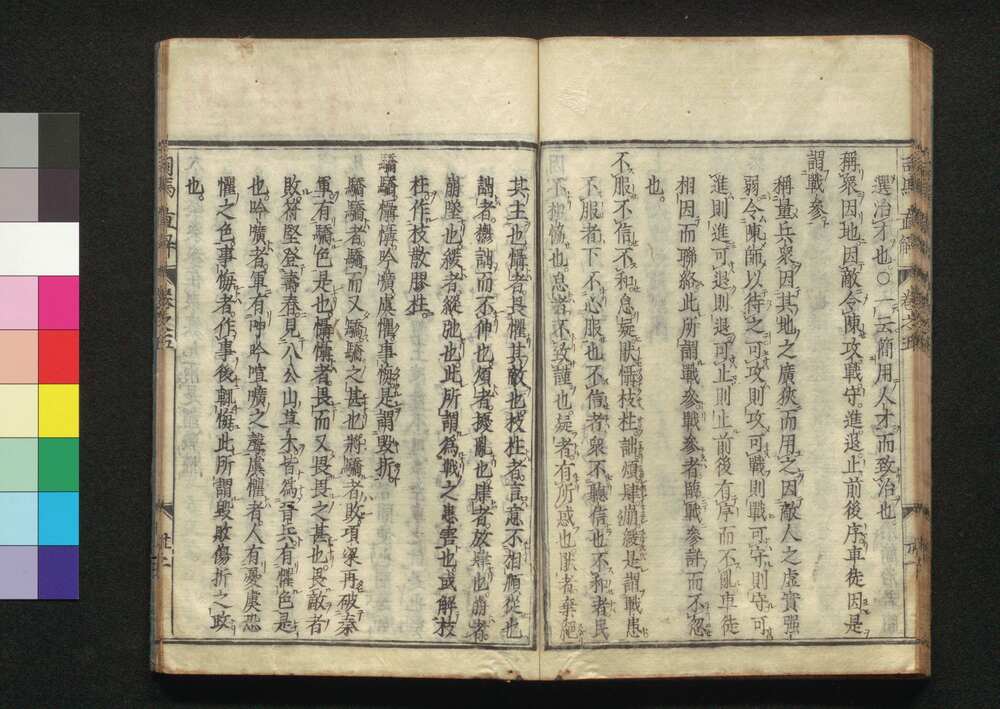 選治才也○一云簡用人才而致治也
稱衆因地因敵令陳攻戰守進退止前後序車徒因是
謂戰參
稱量兵衆因其地之廣狹而用之因敵人之虛實强
弱令陳師以待之可攻則攻可戰則戰可守則守可
進則進可退則退可止則止前後有序而不亂車徒
相因而聯絡此所謂戰參戰參者臨戰參詳而不忽
也。
不服不信不和怠疑厭懾枝柱詘煩肆崩緩是謂戰患
不服者下不心服也不信者衆不聽信也不和者民
不和協也怠者不致謹也疑者有所惑也厭者棄絕
其主也懾者畏懼其敵也枝柱者言意不相順從也
詘者鬱詘而不伸也煩者擾亂也肆者放肆也崩者
崩墜也緩者縱弛也此所謂為戰之患害也或解枝
柱作枝散膠柱。
驕驕懾懾吟曠虞懼事悔是謂毀折。
驕驕者驕而又驕驕之甚也將驕者敗項梁再破秦
軍有驕色是也懾懾者畏而又畏畏之甚也畏敵者
敗苻堅登壽春見八公山草木皆為晋兵有懼色是
也吟曠者軍有呻吟喧曠之聲虞懼者人有憂虞恐
懼之色事悔者作事後輒悔此所謂毀敗傷折之政
也。